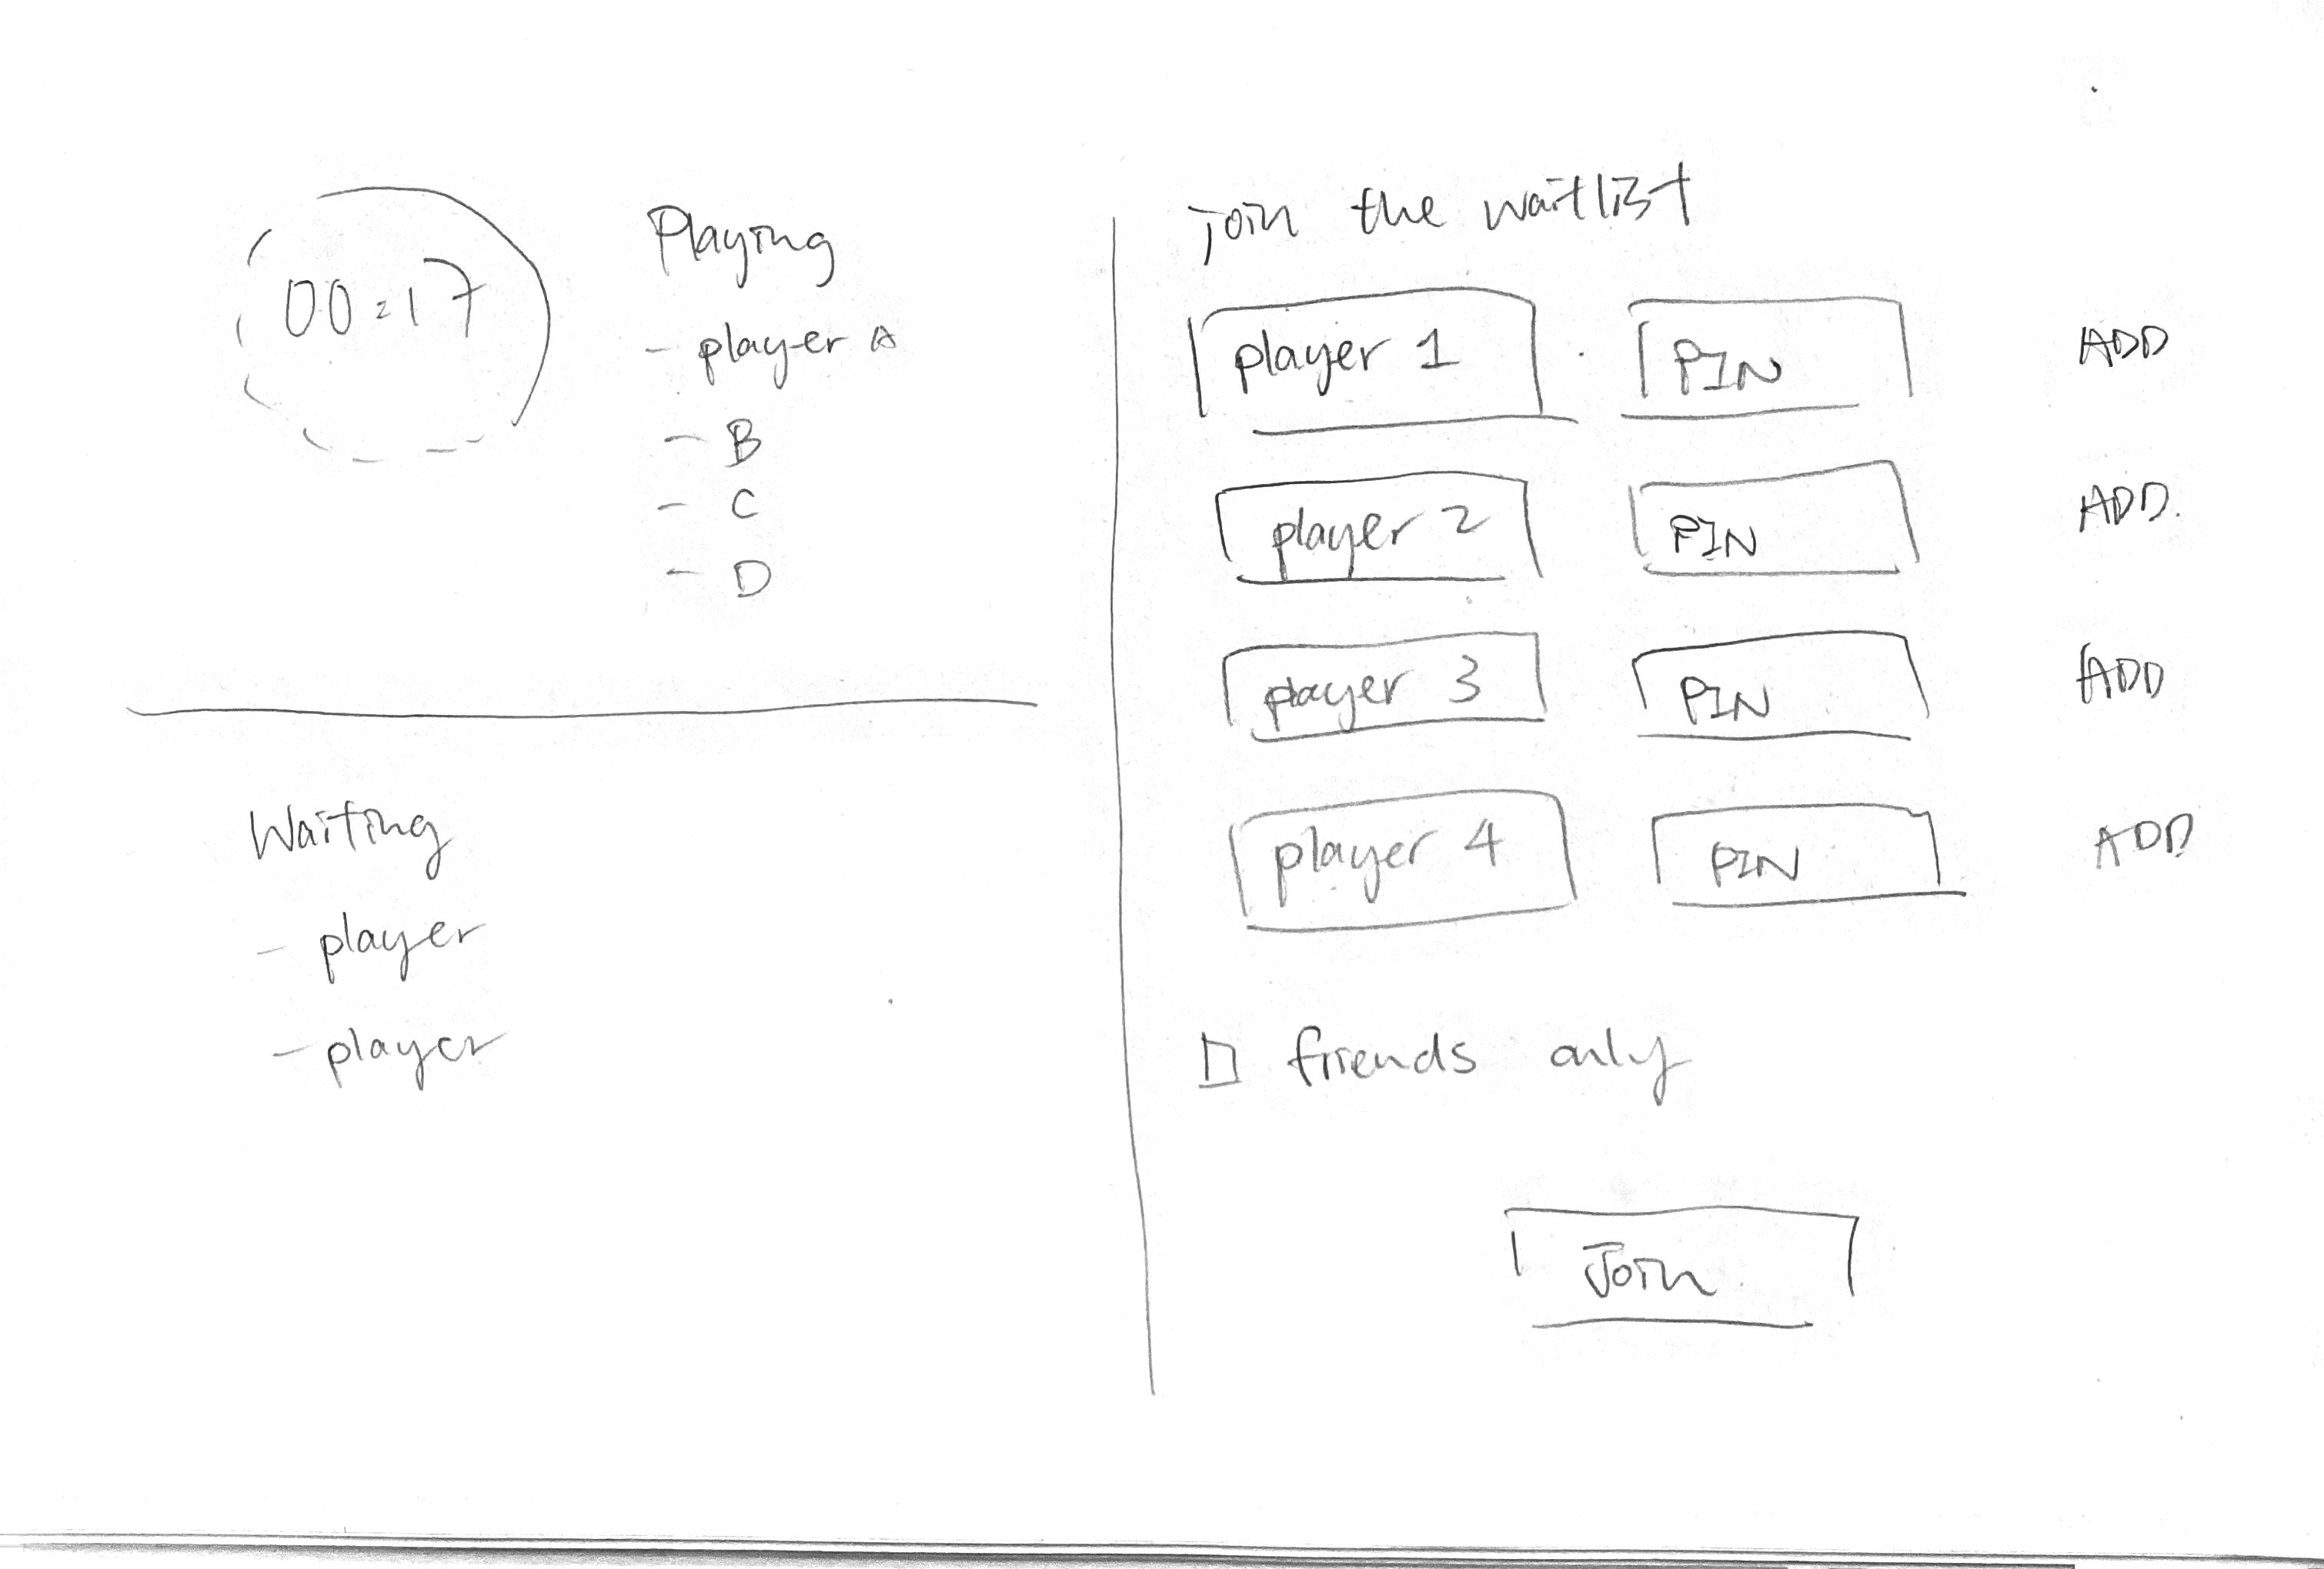 00:17
Playing
- player A
- B
- C
- D
Waiting
- player
- player
join the waitlist
player 1 PIN ADD
player 2 PIN ADD.
player 3 PIN ADD
player 4 PIN ADD
friends only
Join